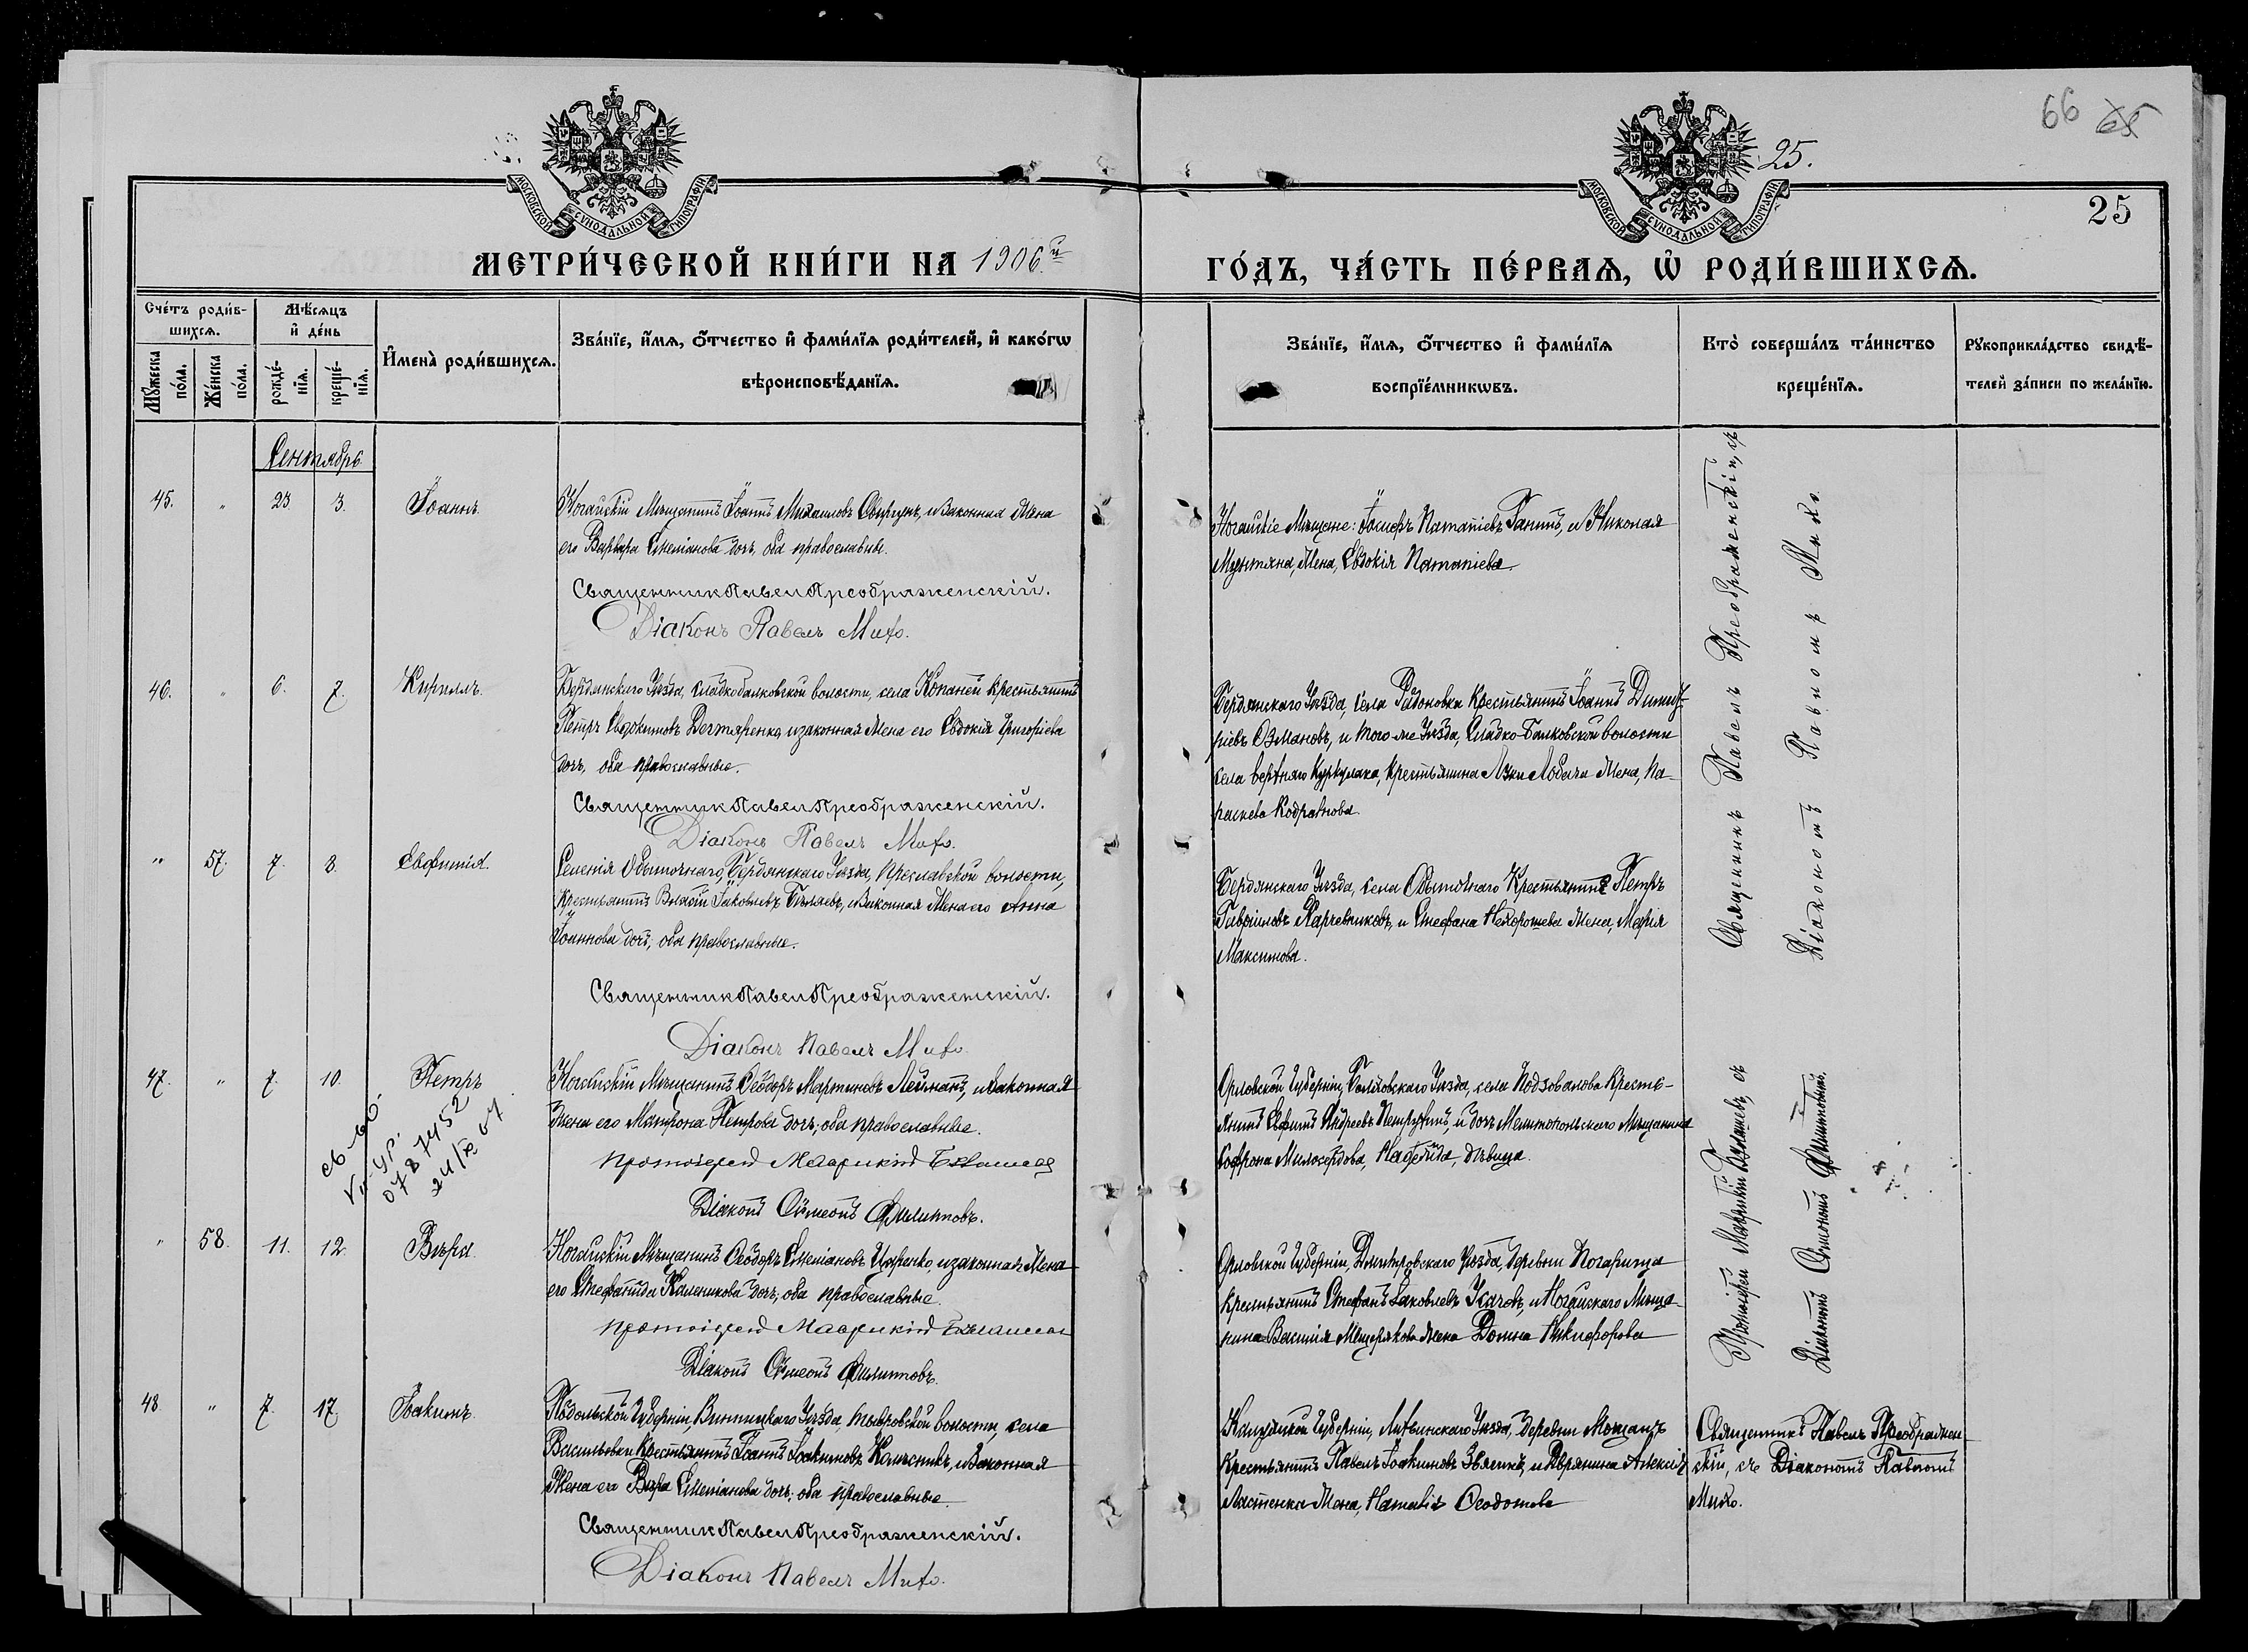 66 65
25.
МОСКОВСКОЙ СѴНОДАЛЬНОЙ ТИПОГРАФІИ
МОСКОВСКОЙ СѴНОДАЛЬНОЙ ТИПОГРАФІИ
25
МЕТРИ́ЧЕСКОЙ КНИ́ГИ НА 1906.й
ГО́ДЪ, ЧА́СТЬ ПЕ́РВАѦ, Ѡ҆ РОДИ́ВШИХСѦ.
Сче́тъ роди́в-
шихсѧ.
Мꙋ́жеска по́ла.
Же́нска по́ла.
Мѣ́сѧцъ
и҆ де́нь
рожде́-
нїѧ.
креще́-
нїѧ.
И҆мена̀ роди́вшихсѧ.
Зва́нїе, и҆́мѧ, ѻ҆́тчество и҆ фами́лїѧ роди́телей, и҆ како́гѡ
вѣроисповѣ́данїѧ.
Зва́нїе, и҆́мѧ, ѻ҆́тчество и҆ фами́лїѧ
воспрїе́мникѡвъ.
Кто̀ соверша́лъ та́инство
креще́нїѧ.
Рꙋкоприкла́дство свидѣ́-
телей за́писи по жела́нїю.
Сентябрь.
45. " 23 3. Іоаннъ.
Ногайскій Мѣщанинъ Іоаннъ Михаиловъ, и законная жена
его Варвара Стефанова дочь, оба православные.
Священник Павел Преображенский.
Діаконъ Павелъ Михо.
Ногайскіе Мѣщане: Патапіевъ Ганинъ, и Николая
жена, Евдокія Патапіева.
Священникъ Павелъ Преображенскій, съ
Діакономъ Павломъ Михо.
46. " 6. 7. Кириллъ.
Бердянскаго Уѣзда, Сладкобалковской волости, села Копаней крестьянинъ
Петръ Евдокимовъ Дегтяренко, и законная жена его Евдокія Григоріева
дочь, оба православные.
Священник Павел Преображенский.
Діаконъ Павелъ Михо.
Бердянскаго Уѣзда, села Радоновки Крестьянинъ Іоаннъ Димит-
ріевъ Озмановъ, и того-же Уѣзда, Сладко-Балковской волости
села верхняго Куркулака, Крестьянина Луки Лобача жена, Па-
раскева Кодратова.
" 57. 7. 8. Евфимія.
Селенія Обиточнаго, Бердянскаго Уѣзда, Преславской волости,
Крестьянинъ Іаковлевъ Бѣляевъ, и законная жена его Анна
Іоаннова дочь, оба православные.
Священник Павел Преображенский.
Діаконъ Павелъ Михо.
Бердянскаго Уѣзда, села Обиточнаго Крестьянинъ Петръ
Гавріиловъ Харчевниковъ, и Стефана Нехорошева жена, Марія
Максимова.
47. " 7. 10. Петръ
св-во
0787452
Ногайскій Мѣщанинъ Ѳеодоръ Мартиновъ Лейманъ, и законная
жена его Матрона Петрова дочь, оба православные.
протоіерей Маврикій
Діаконъ Сѵмеонъ Филиповъ.
Орловской Губерніи, Болховскаго Уѣзда, села Подзовалова Кресть-
янинъ Евфимъ Андреевъ Петрухинъ, и дочь Мелитопольскаго Мѣщанина
Софрона Милосердова, Надежда, дѣвица.
Протоіерей Маврикій съ
Діакономъ Сѵмеономъ
" 58. 11. 12. Вѣра.
Ногайскій Мѣщанинъ Ѳеодоръ Стефановъ Ищенко, и законная жена
его Стефанида Каленикова дочь, оба православные.
протоіерей Маврикій
Діаконъ Сѵмеонъ Филиповъ.
Орловской Губерніи, Дмитровскаго Уѣзда, деревни Погарища
крестьянинъ Стефанъ Іаковлевъ Усачовъ, и Ногайскаго Мѣща-
нина Василія Мещерякова жена Домна Никифорова
48 " 7. 17. Іоакимъ.
Подольской Губерніи, Винницкаго Уѣзда, Тывровской волости, села
Васильевки Крестьянинъ Іоаннъ Іоакимовъ Колѣсникъ, и законная
жена его Вѣра Стефанова дочь, оба православные.
Священник Павел Преображенский.
Діаконъ Павелъ Михо.
Калужской Губерніи, Уѣзда, деревни
Крестьянинъ Павелъ Іоакимовъ, и Дврянина Алексія
Ластенка жена, Наталія Ѳеодотова
Священникъ Павелъ Преображен-
скій, съ Діакономъ Павломъ
Михо.